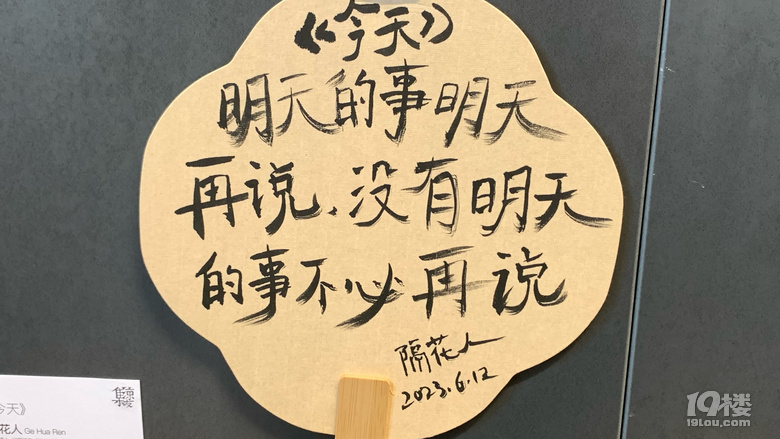 《今天》
明天的事明天
再说、没有明天
的事不必再说
隔花人
2023.6.12
今天》
花人 Ge Hua Ren
19楼
19lou.com